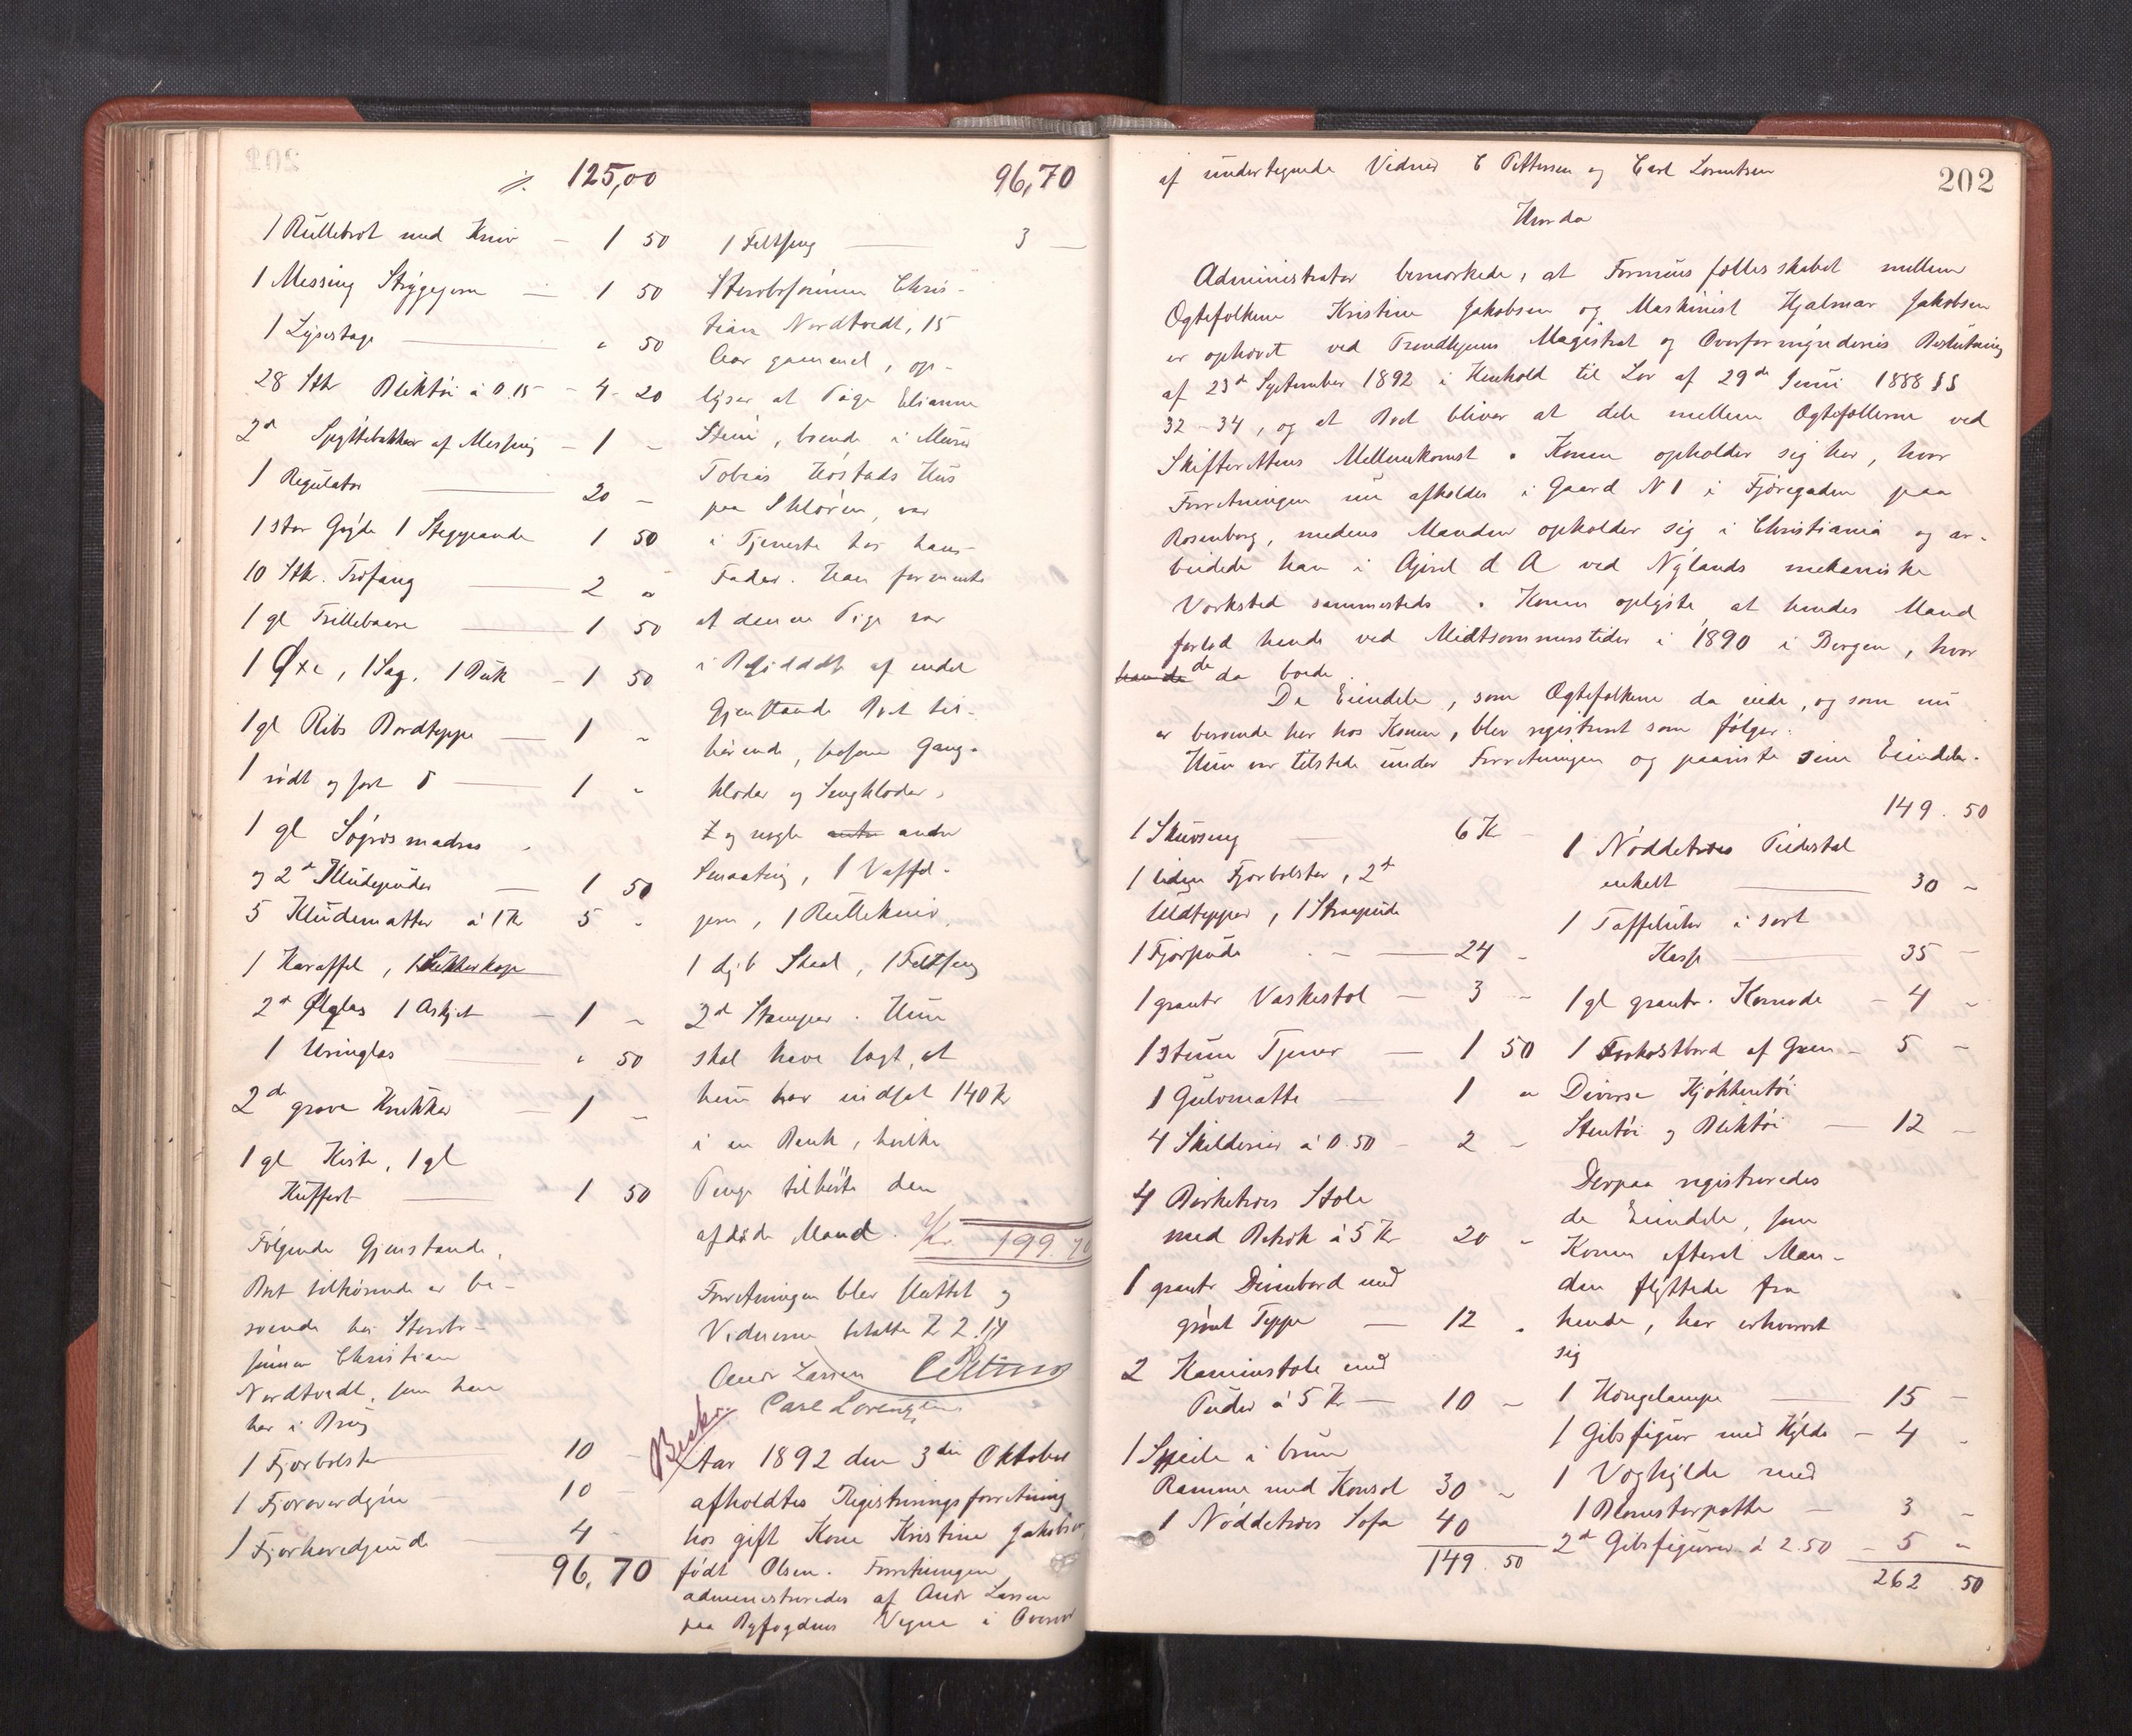 125,00
1 Rullebret med Kniv — 1 50
1 Messing Strygejern — 1 50
1 Lysestage — " 50
28 Stk Bliktöi à 0.15 - 4 - 20
2de Spyttebakker af Messing — 1 -
1 Regulator — 20 -
1 stor Gryde 1 Stegpande 1 50
10 Stk. Træfang — 2 "
1 gl Trillebaare — 1 50
1 Øxe, 1 Sag, — 1 50
1 gl Ribs Bordteppe — 1 "
1 rödt og sort d — 1 "
1 gl Søgræsmadras
og 2de Kludepuder — 1 50
5 Kludematter à 1 Kr 5 -
1 Karaffel, 1 Sukkerkop
2de Ølglas 1 Asjet — 1 -
1 Uringlas — " 50
2de grove Krukker — 1 -
1 gl Kiste, 1 gl
Kuffert — 1 50
Følgende Gjenstande,
Boet tilhörende er be-
roende hos Stervbo-
sønnen Christian
Nordtvedt, som han
har i Brug
1 Fjærbolster — 10 -
1 Fjæroverdyne — 10 -
1 Fjærhovedpude — 4 -
96,70
96,70
1 Feltseng — 3 —
Stervbosønnen Chris-
tian Nordtvedt, 15
Aar gammel, op-
lyser at Pige Elianna
Steni, boende i Murer
Tobias Høstads Hus
paa Ihlören, var
i Tjeneste hos hans
Fader. Han formente
at denne Pige var
i Besiddelse af endel
Gjenstande Boet til-
hörende, saasom Gang-
klæder og Sengklæder,
og nogle andre
Smaating, 1 Vaffel-
jern, 1 Rullekniv,
1 dyb Skaal, 1 Feltseng
2de Stamper. Hun
skal have sagt, at
hun har indsat 140 Kr
i en Bank, hvilke
Penge tilhörte den
afdöde Mand. Kr. 199.70
Forretningen blev sluttet og
Vidnerne betalte
Andr Larsen C Pettersen
Carl Lorentzen
Beskr.
Aar 1892 den 3die Oktober
afholdtes Registreringsforretning
hos gift Kone Kristine Jakobsen,
födt Olsen. Forretningen
administreredes af Andr Larsen
paa Byfogdens Vegne i Overvær
202
af undertegnede Vidner C Pettersen og Carl Lorentsen
Hvorda
Administrator bemærkede, at Formuesfællesskabet mellem
Ægtefolkene Kristine Jakobsen og Maskinist Hjalmar Jakobsen
er ophævet ved Trondhjems Magistrat og Overformynderies Beslutning
af 23de September 1892 i Henhold til Lov af 29de Juni 1888 §§
32-34, og at Boet bliver at dele mellem Ægtefællerne ved
Skifterettens Mellemkomst. Konen opholder sig her, hvor
Forretningen nu afholdes i Gaard N 1 i Fjæregaden paa
Rosenborg, medens Manden opholder sig i Christiania og ar-
beidede han i April d A ved Nylands mekaniske
Værksted sammesteds. Konen oplyste, at hendes Mand
forlod hende ved Midtsommerstider i 1890 i Bergen, hvor
de da boede.
De Eiendele, som Ægtefolkene da eiede, og som nu
er beroende her hos Konen, blev registreret som følger.
Hun var tilstede under Forretningen og paaviste sine Eiendele.
1 Skuvseng — 6 Kr -
1 liden Fjærbolster, 2de
Uldtepper, 1 Straapude
1 Fjærpude — 24 -
1 grantr Vaskestol — 3 -
1 stum Tjener — 1 50
1 Gulvmatte — 1 "
4 Skilderier à 0.50 - 2 -
4 Birketræs Stole
med Betræk à 5 Kr 20 -
1 grantr Divanbord med
grønt Teppe — 12 "
2 Kaminstole med
Puder à 5 Kr — 10 -
1 Speile i brun
Ramme med Konsol 30 -
1 Nöddetræs Sofa 40
149 . 50
149 . 50
1 Nöddetræes Pidestal
enkelt — 30 -
1 Taffeluhr i sort
Kasse — 35 -
1 gl grantr. Komode — 4 -
1 Frokostbord af Gran — 5 -
Diverse Kjökkentöi
Stentöi og Bliktöi — 12 -
Derpaa registreredes
de Eiendele, som
Konen efterat Man-
den flyttede fra
hende, har erhvervet
sig
1 Hængelampe — 15 -
1 Gibsfigur med Hylde — 4 -
1 Væghylde med
1 Blomsterpotte — 3 -
2de Gibsfigurer à 2.50 - 5 "
262 50